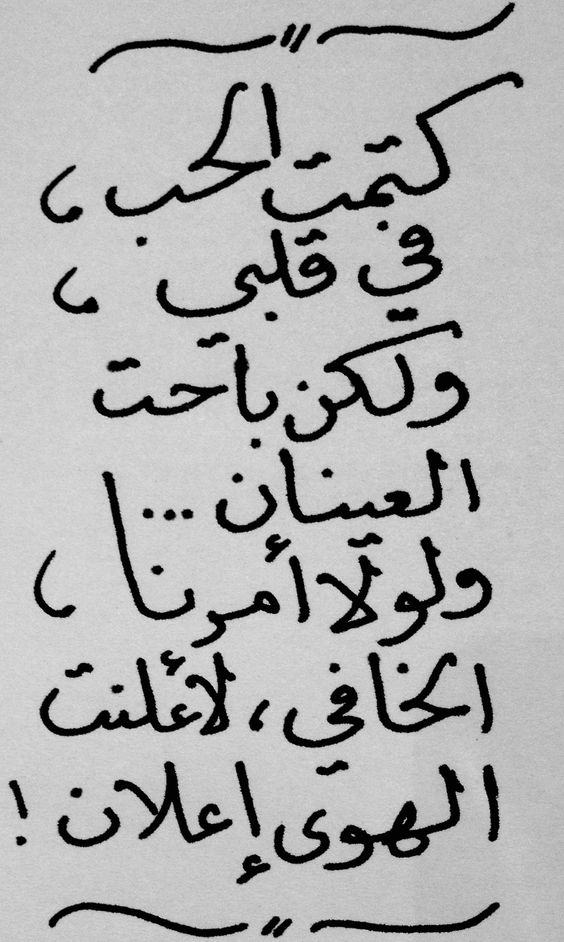 كتمت الحب ،
في قلبي ،
ولكن باحت
العينان ...
ولولا أمرنا ،
الخافي ، لأعلنت
الهوى إعلان !